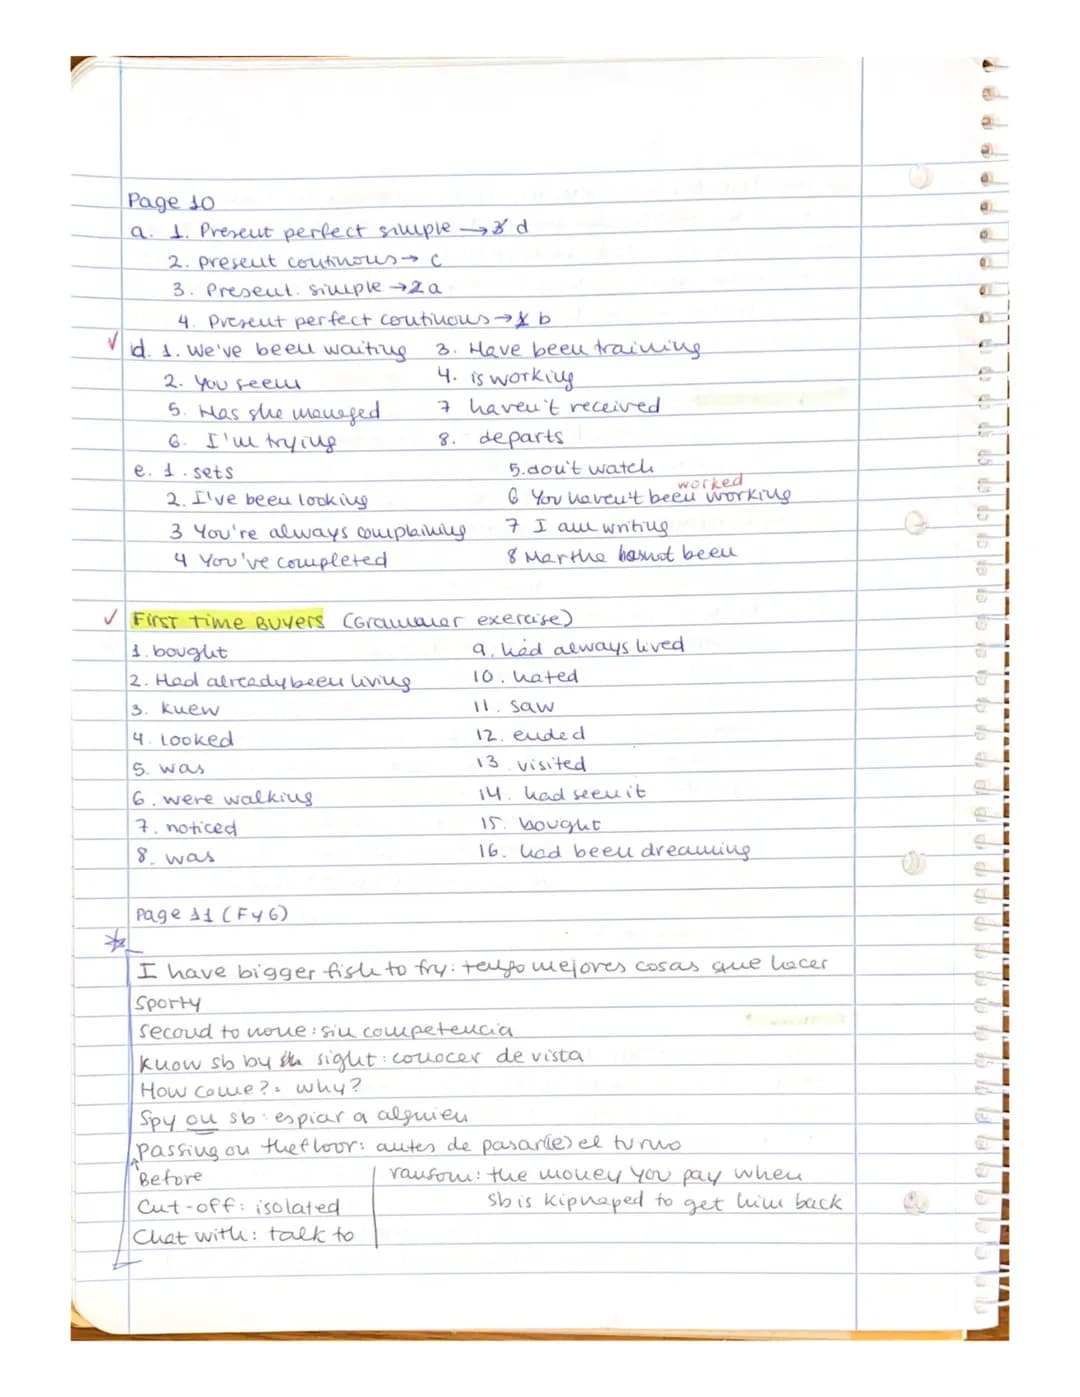 Page 10
a. 1. Present perfect simple → d
2. Present continous → c
3. Present. simple → a
4. Present perfect continuous → b
✓ d. 1. We've been waiting 3. Have been training
2. You seem 4. is working
5. Has she maneged 7 haven't received
6. I'm trying 8. departs
e. 1. sets 5. don't watch
worked
2. I've been looking 6 You haven't been working
3 You're always complaining 7 I am writing
4 You've completed 8 Marthe hasnot been
✓ First time Buyers (Grammar exercise)
1. bought 9. had always lived
2. Had already been living 10. hated
3. knew 11. saw
4. Looked 12. ended
5. was 13. visited
6. were walking 14. had seen it
7. noticed 15. bought
8. was 16. had been dreaming
Page 11 (F y G)
*
I have bigger fish to fry: tengo mejores cosas que hacer
Sporty
Second to none: sin competencia
Know sb by sight: conocer de vista
How come?= why?
Spy on sb: espiar a alguien
Passing on the floor: antes de pasar(le) el turno
↑
Before ransom: the money you pay when
Cut-off: isolated sb is kipnaped to get him back
Chat with: talk to